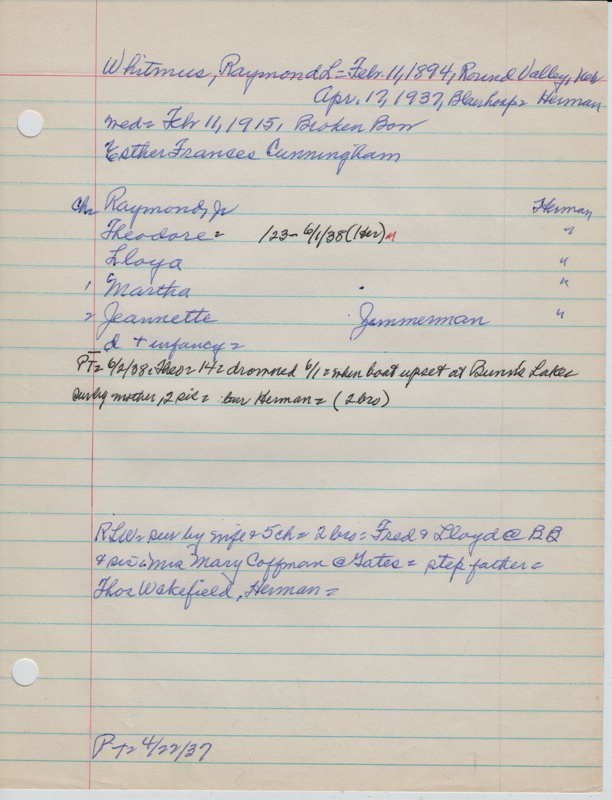 Whitmus, Raymond L = Feb. 11, 1894, Round Valley, Neb
Apr. 17, 1937, Blair hosp = Herman
wed = Feb 11, 1915, Broken Bow
Esther Franses Cunningham
Ch = Raymond, Jr Herman
Theodore = /23 - 6/1/38 (Her) "
Lloyd "
1 Martha "
2 Jeannette Zimmerman "
d + infancy =
PT = 6/2/38. Theo = 14 = drowned 6/1 = when boat upset at Lake
sur by mother, 2 sis = bur Herman = (2 bro)
RLW = sur by wife & 5 ch = 2 bro = Fred & Lloyd @ BB
& sis = Mrs Mary Coffman @ Gates = step father =
Thos Wakefield, Herman =
PT = 4/22/37